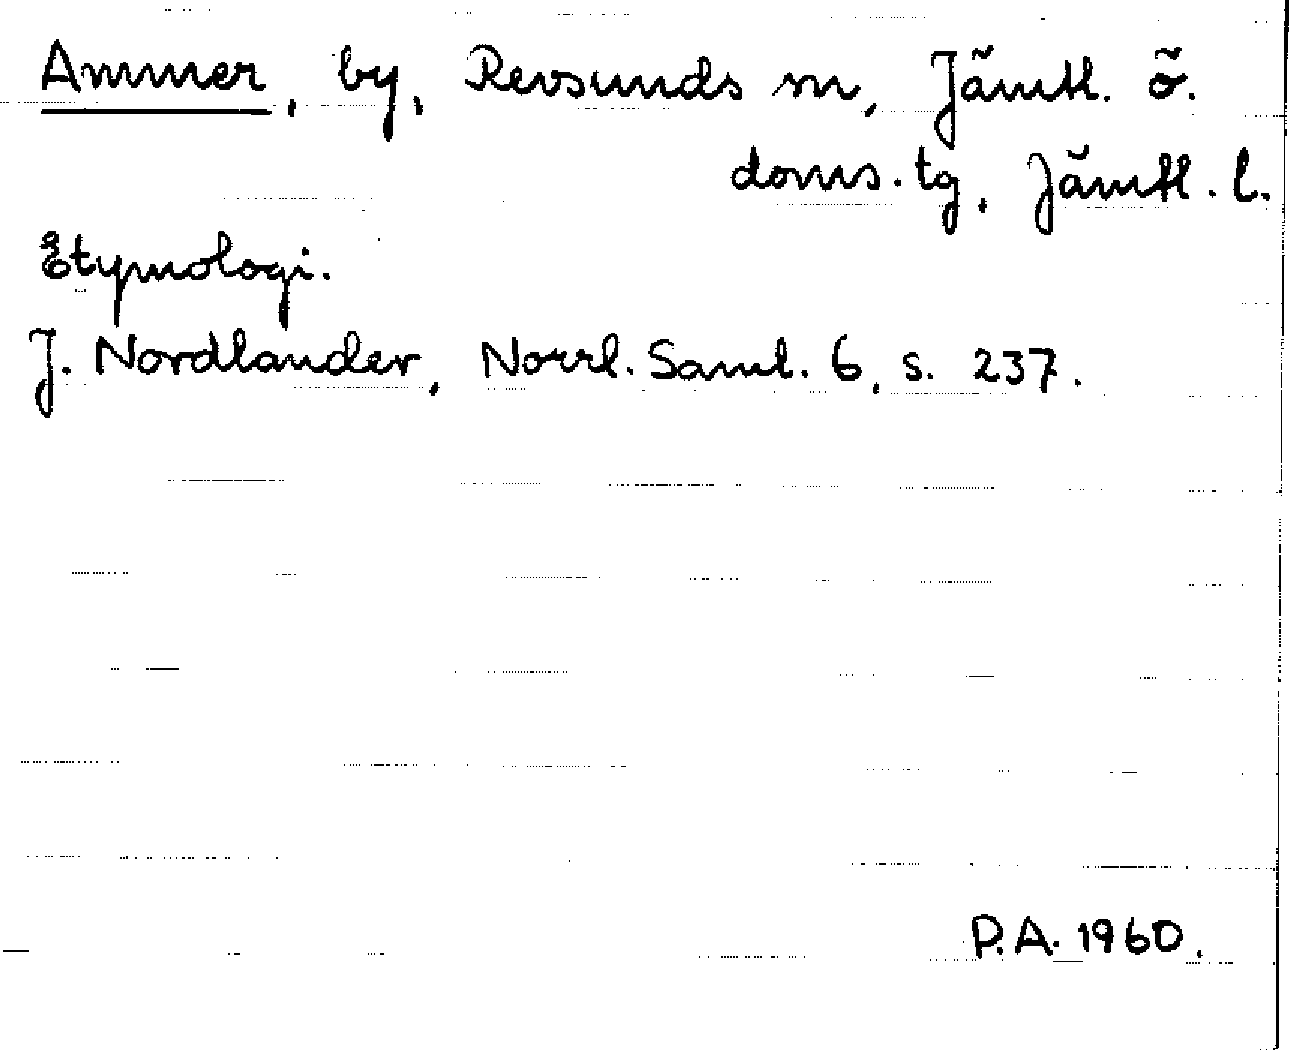 Ammer, by, Revsunds sn, Jämtl. ö.
doms. tg, Jämtl. l.
Etymologi.
J. Nordlander, Norrl. Saml. 6, s. 237.
P.A. 1960.